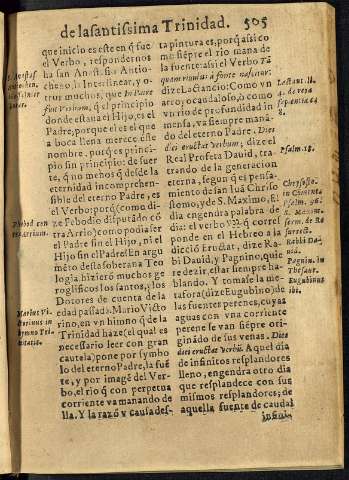 de la santissima Trinidad. 505
que inicio es este en q̃ fue
el Verbo, respondernos
ha san Anast. sin Antio-
cheno, la Interlinear, y o-
tros muchos, que In Patre
fuit Verbum, q̃ el principio
donde estaua el Hijo, es el
Padre, porque el es el que
a boca llena merece este
nombre, porq̃ es princi-
pio sin principio: de suer
te, q̃ no menos q̃ desde la
eternidad incomprehen-
sible del eterno Padre, es
el Verbo; por q̃ (como di-
ze Febodio disputādo cō
tra Arrio) como podia ser
el Padre sin el Hijo, ni el
Hijo sin el Padre? En argu
mēto de la soberana Teo
logia hizierō muchos ge
roglificos los santos, y los
Dotores de cuenta de la
edad passada. Mario Victo
rino, en vn hinno q̃ de la
Trinidad haze (el qual es
necessario leer con gran
cautela) pone por symbo
lo del eterno Padre, la fuē
te, y por imagē del Verbo,
el rio q̃ con perpetua
corriente va manando de
lla. Y la razō y causa des-
S. Anastas.
Antiochen.
Phebod con
tra Arrium.
Marius Vi
ctorinus in
hymno Tri
nitatis.
ta pintura es, porq̃ assi co
mo siēpre el rio mana de
la fuente: assi el Verbo Tā
quam riuulus à fonte nascitur:
dize Lactancio: Como vn
arroyo caudaloso, ò como
vn rio de profundidad in
mensa, va siempre manā-
do del eterno Padre. Dies
diei eructat verbum; dize el
Real Profeta Dauid, tra-
tando de la generacion
eterna, segun es pensa-
miento de san Iuā Chriso
stomo, y de S. Maximo, El
dia engendra palabra de
dia: el verbo que corres
ponde en el Hebreo a la
dicciō Eructat, dize Ra-
bi Dauid, y Pagnino, que
re dezir, estar siempre ha-
blando. Y tomase la me-
tafora (dize Eugubino) de
las fuentes perenes, cuyas
aguas con vna corriente
perene se van siēpre ori-
ginādo de sus venas. Dies
diei eructat verbū. Aquel dia
de infinitos resplandores
lleno, engendra otro dia
que resplandece con sus
mismos resplandores; de
aquella fuente de caudal
infini-
Lactant. li.
4. de vera
sapentia c.
8
Psalm. 18.
Chrysosto.
in Catena
Psalm. 96.
S. Maxim.
serm. de Re
surrect.
Rabbi Da-
uid.
Pagnin. in
Thesaur.
Eugubinus
ibi.